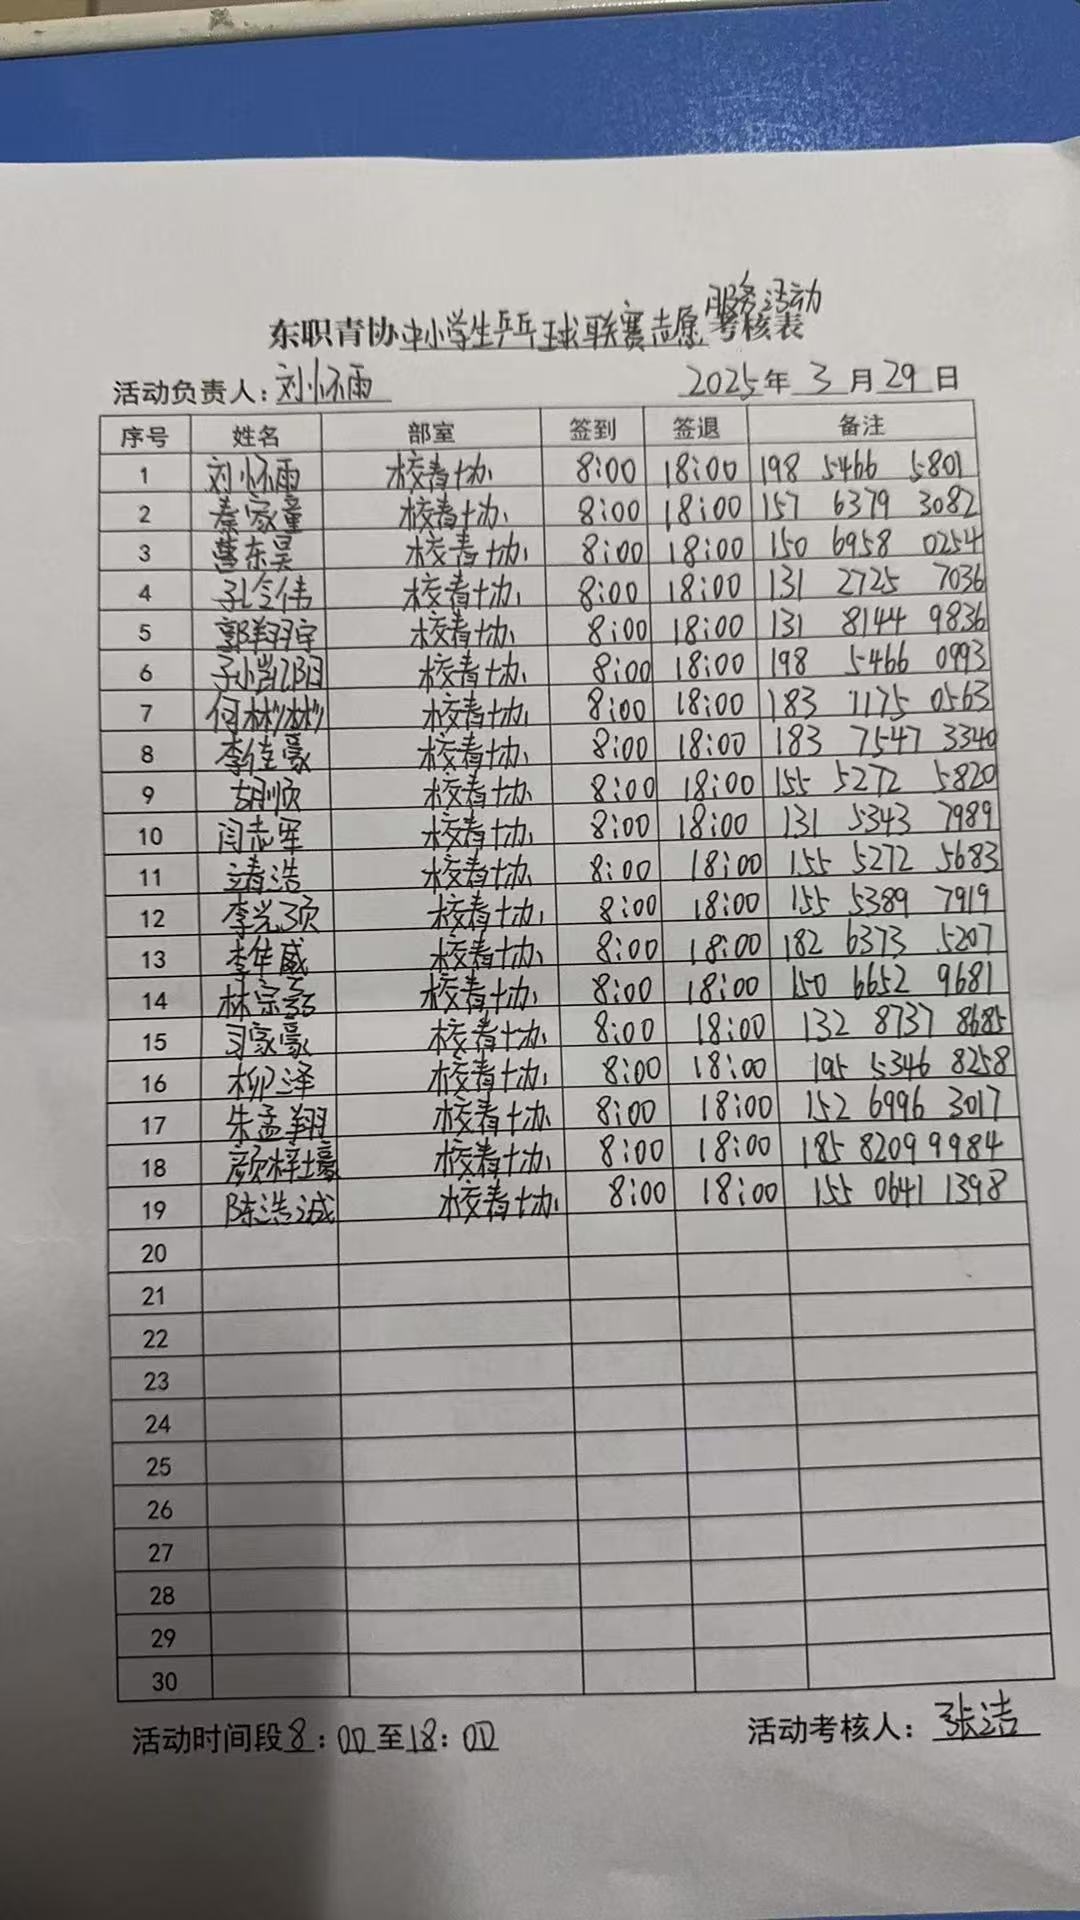 服务活动
东职青协中小学生乒乓球联赛志愿考核表
活动负责人：刘怀雨 2025年 3 月 29 日
序号 姓名 部室 签到 签退 备注
1 刘怀雨 校青协 8:00 18:00 198 5466 5801
2 秦家童 校青协 8:00 18:00 157 6379 3082
3 东昊 校青协 8:00 18:00 150 6958 0254
4 孔令伟 校青协 8:00 18:00 131 2725 7036
5 郭翔宇 校青协 8:00 18:00 131 8144 9836
6 孙凯阳 校青协 8:00 18:00 198 5466 0993
7 何彬彬 校青协 8:00 18:00 183 1175 0563
8 李佳豪 校青协 8:00 18:00 183 7547 3340
9 胡顺 校青协 8:00 18:00 155 5272 5820
10 闫志军 校青协 8:00 18:00 131 5343 7989
11 靖浩 校青协 8:00 18:00 155 5272 5683
12 李光硕 校青协 8:00 18:00 155 5389 7919
13 李华威 校青协 8:00 18:00 182 6373 5207
14 林宗 校青协 8:00 18:00 150 6652 9681
15 家豪 校青协 8:00 18:00 132 8737 8685
16 柳泽 校青协 8:00 18:00 195 5346 8258
17 朱孟翔 校青协 8:00 18:00 152 6996 3017
18 颜梓壕 校青协 8:00 18:00 185 8209 9984
19 陈浩诚 校青协 8:00 18:00 155 0641 1398
20
21
22
23
24
25
26
27
28
29
30
活动时间段8：00至18：00 活动考核人：张洁